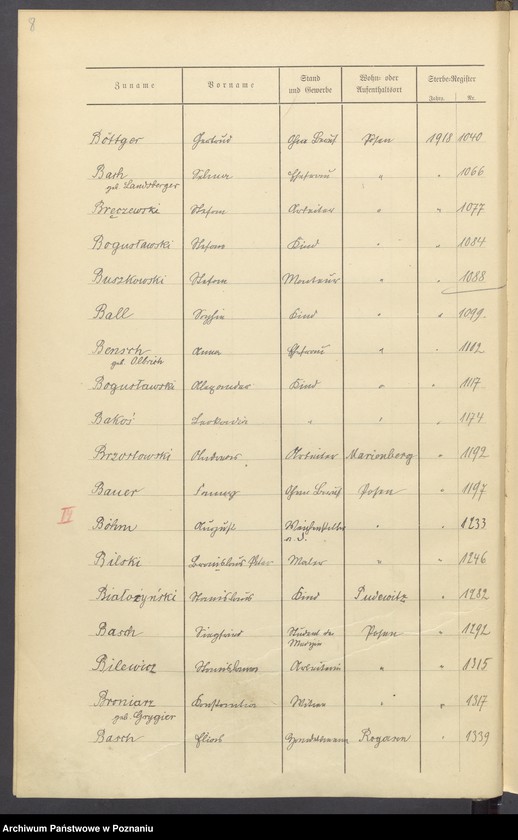 8
Zuname Vorname Stand und Gewerbe Wohn- oder Aufenthaltsort Sterbe-Register
Jahrg. Nr.
Böttger Gertrud Ohne Beruf Posen 1918 1040
Basch Selma Ehefrau " " 1066
geb. Landsberger
Bręczewski Stefan Arbeiter " " 1077
Bogusławski Stefan Kind " " 1084
Buszkowski Stefan Monteur " " 1088
Ball Sophie Kind " " 1099
Bensch Anna Ehefrau " " 1102
geb. Olbrich
Bogusławski Alexander Kind " " 1117
Bakoś Leokadia " " " 1174
Brzostowski Andreas Arbeiter Marienberg " 1192
Bauer Fanny Ohne Beruf Posen " 1197
Böhm August Weichensteller " " 1233
a. D.
Bilski Bronislaus Peter Maler " " 1246
Białożyński Stanislaus Kind Pudewitz " 1282
Basch Siegfried Student der Posen " 1292
Medizin
Bilewicz Arbeiterin " " 1315
Broniarz Konstantia Witwe " " 1317
geb. Grygier
Basch Elias Handelsmann Rogasen " 1339
Archiwum Państwowe w Poznaniu